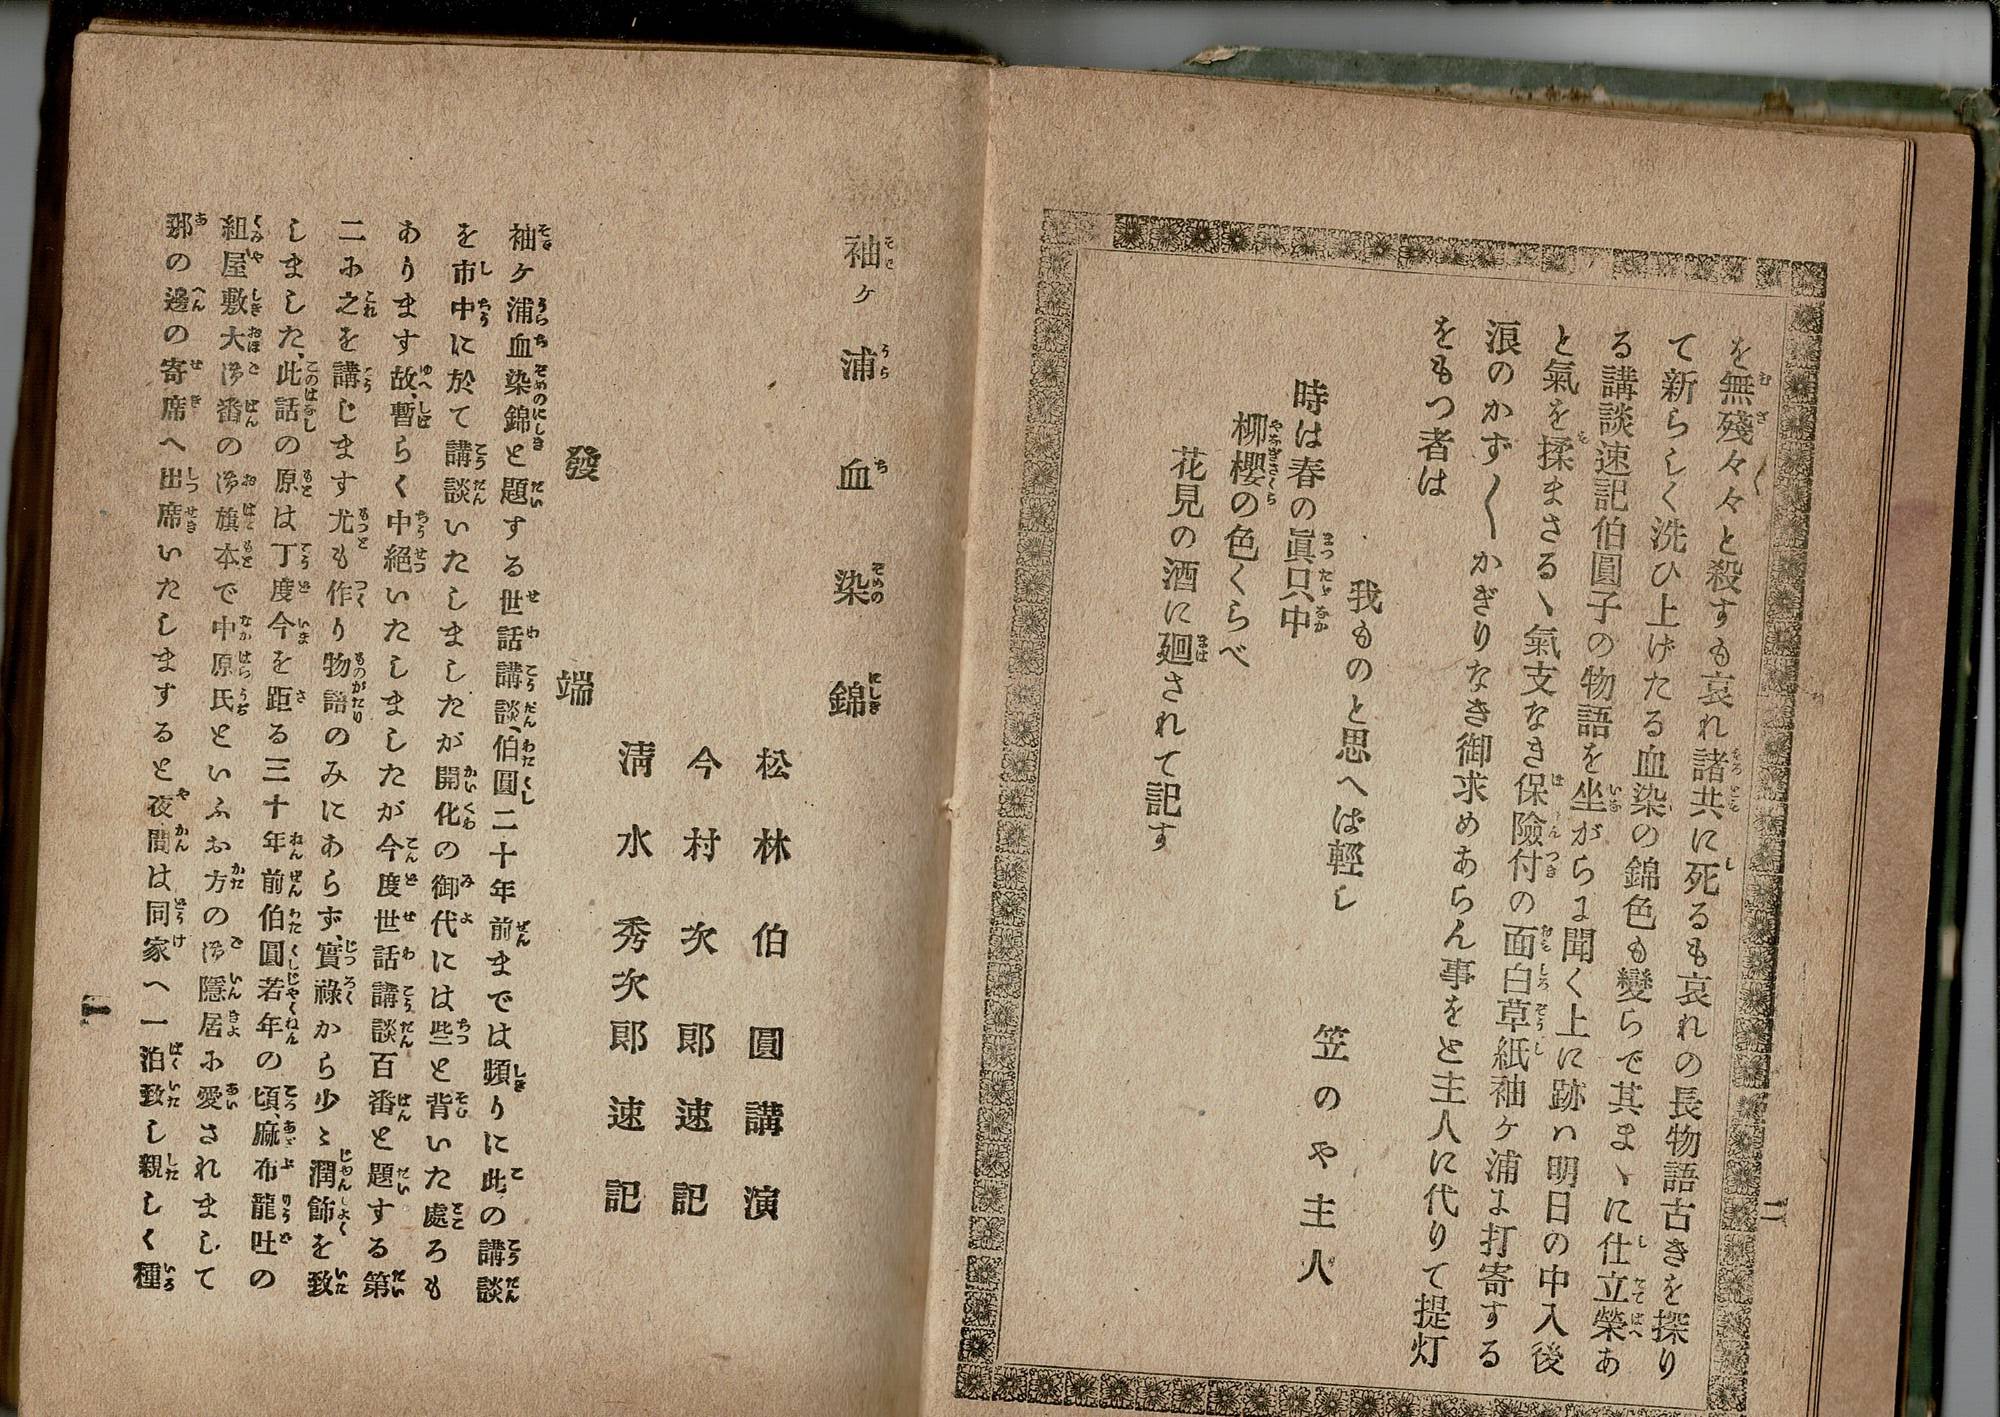 を無殘々々と殺すも哀れ諸共に死るも哀れの長物語古きを探り
て新らしく洗ひ上げたる血染の錦色も變らで其まゝに仕立榮あ
る講談速記伯圓子の物語を坐がらに聞く上に跡ハ明日の中入後
と氣を揉まさるゝ氣支なき保險付の面白草紙袖ヶ浦に打寄する
浪のかず〱かぎりなき御求めあらん事をと主人に代りて提灯
をもつ者は
我ものと思へは輕し
時は春の眞只中
柳櫻の色くらべ
花見の酒に廻されて記す
笠のや主人
二
袖ヶ浦血染錦
松林伯圓講演
今村次郎速記
淸水秀次郎速記
發端
袖ヶ浦血染錦と題する世話講談、伯圓二十年前までは頻りに此の講談
を市中に於て講談いたしましたが開化の御代には些と背いた處ろも
あります故、暫らく中絕いたしましたが今度世話講談百番と題する第
二に之を講じます尤も作り物語のみにあらず、實祿から少々潤飾を致
しました、此話の原は丁度今を距る三十年前伯圓若年の頃、麻布龍吐の
組屋敷大御番の御旗本で中原氏といふお方の御隱居に愛されまして
那の邊の寄席へ出席いたしますると夜間は同家へ一泊致し親しく種
一